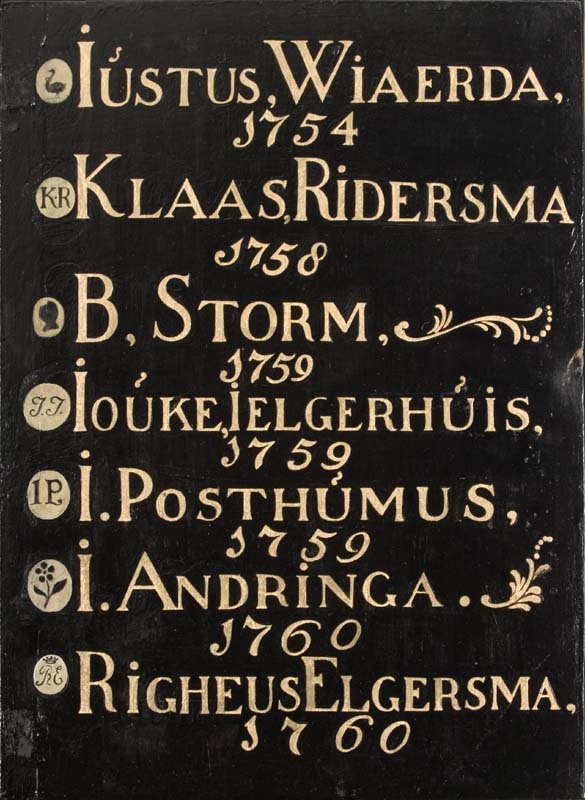 İÚSTUS, WİAERDA,
1754
K·R KLAAS, RİDERSMA
1758
B, STORM,
1759
J.J. İOÚKE, İELGERHÚİS,
1759
IP. İ. POSTHÚMUS,
1759
İ. ANDRİNGA.
1760
RE RİGHEUS ELGERSMA,
1760